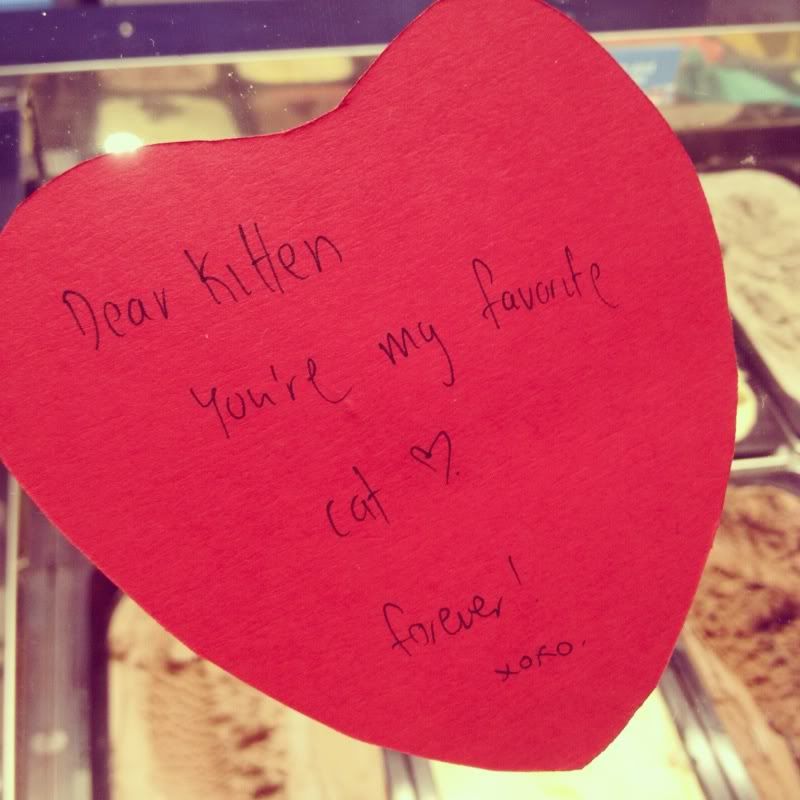 Dear Kitten
You're my favorite
cat ♡.
forever!
xoxo.